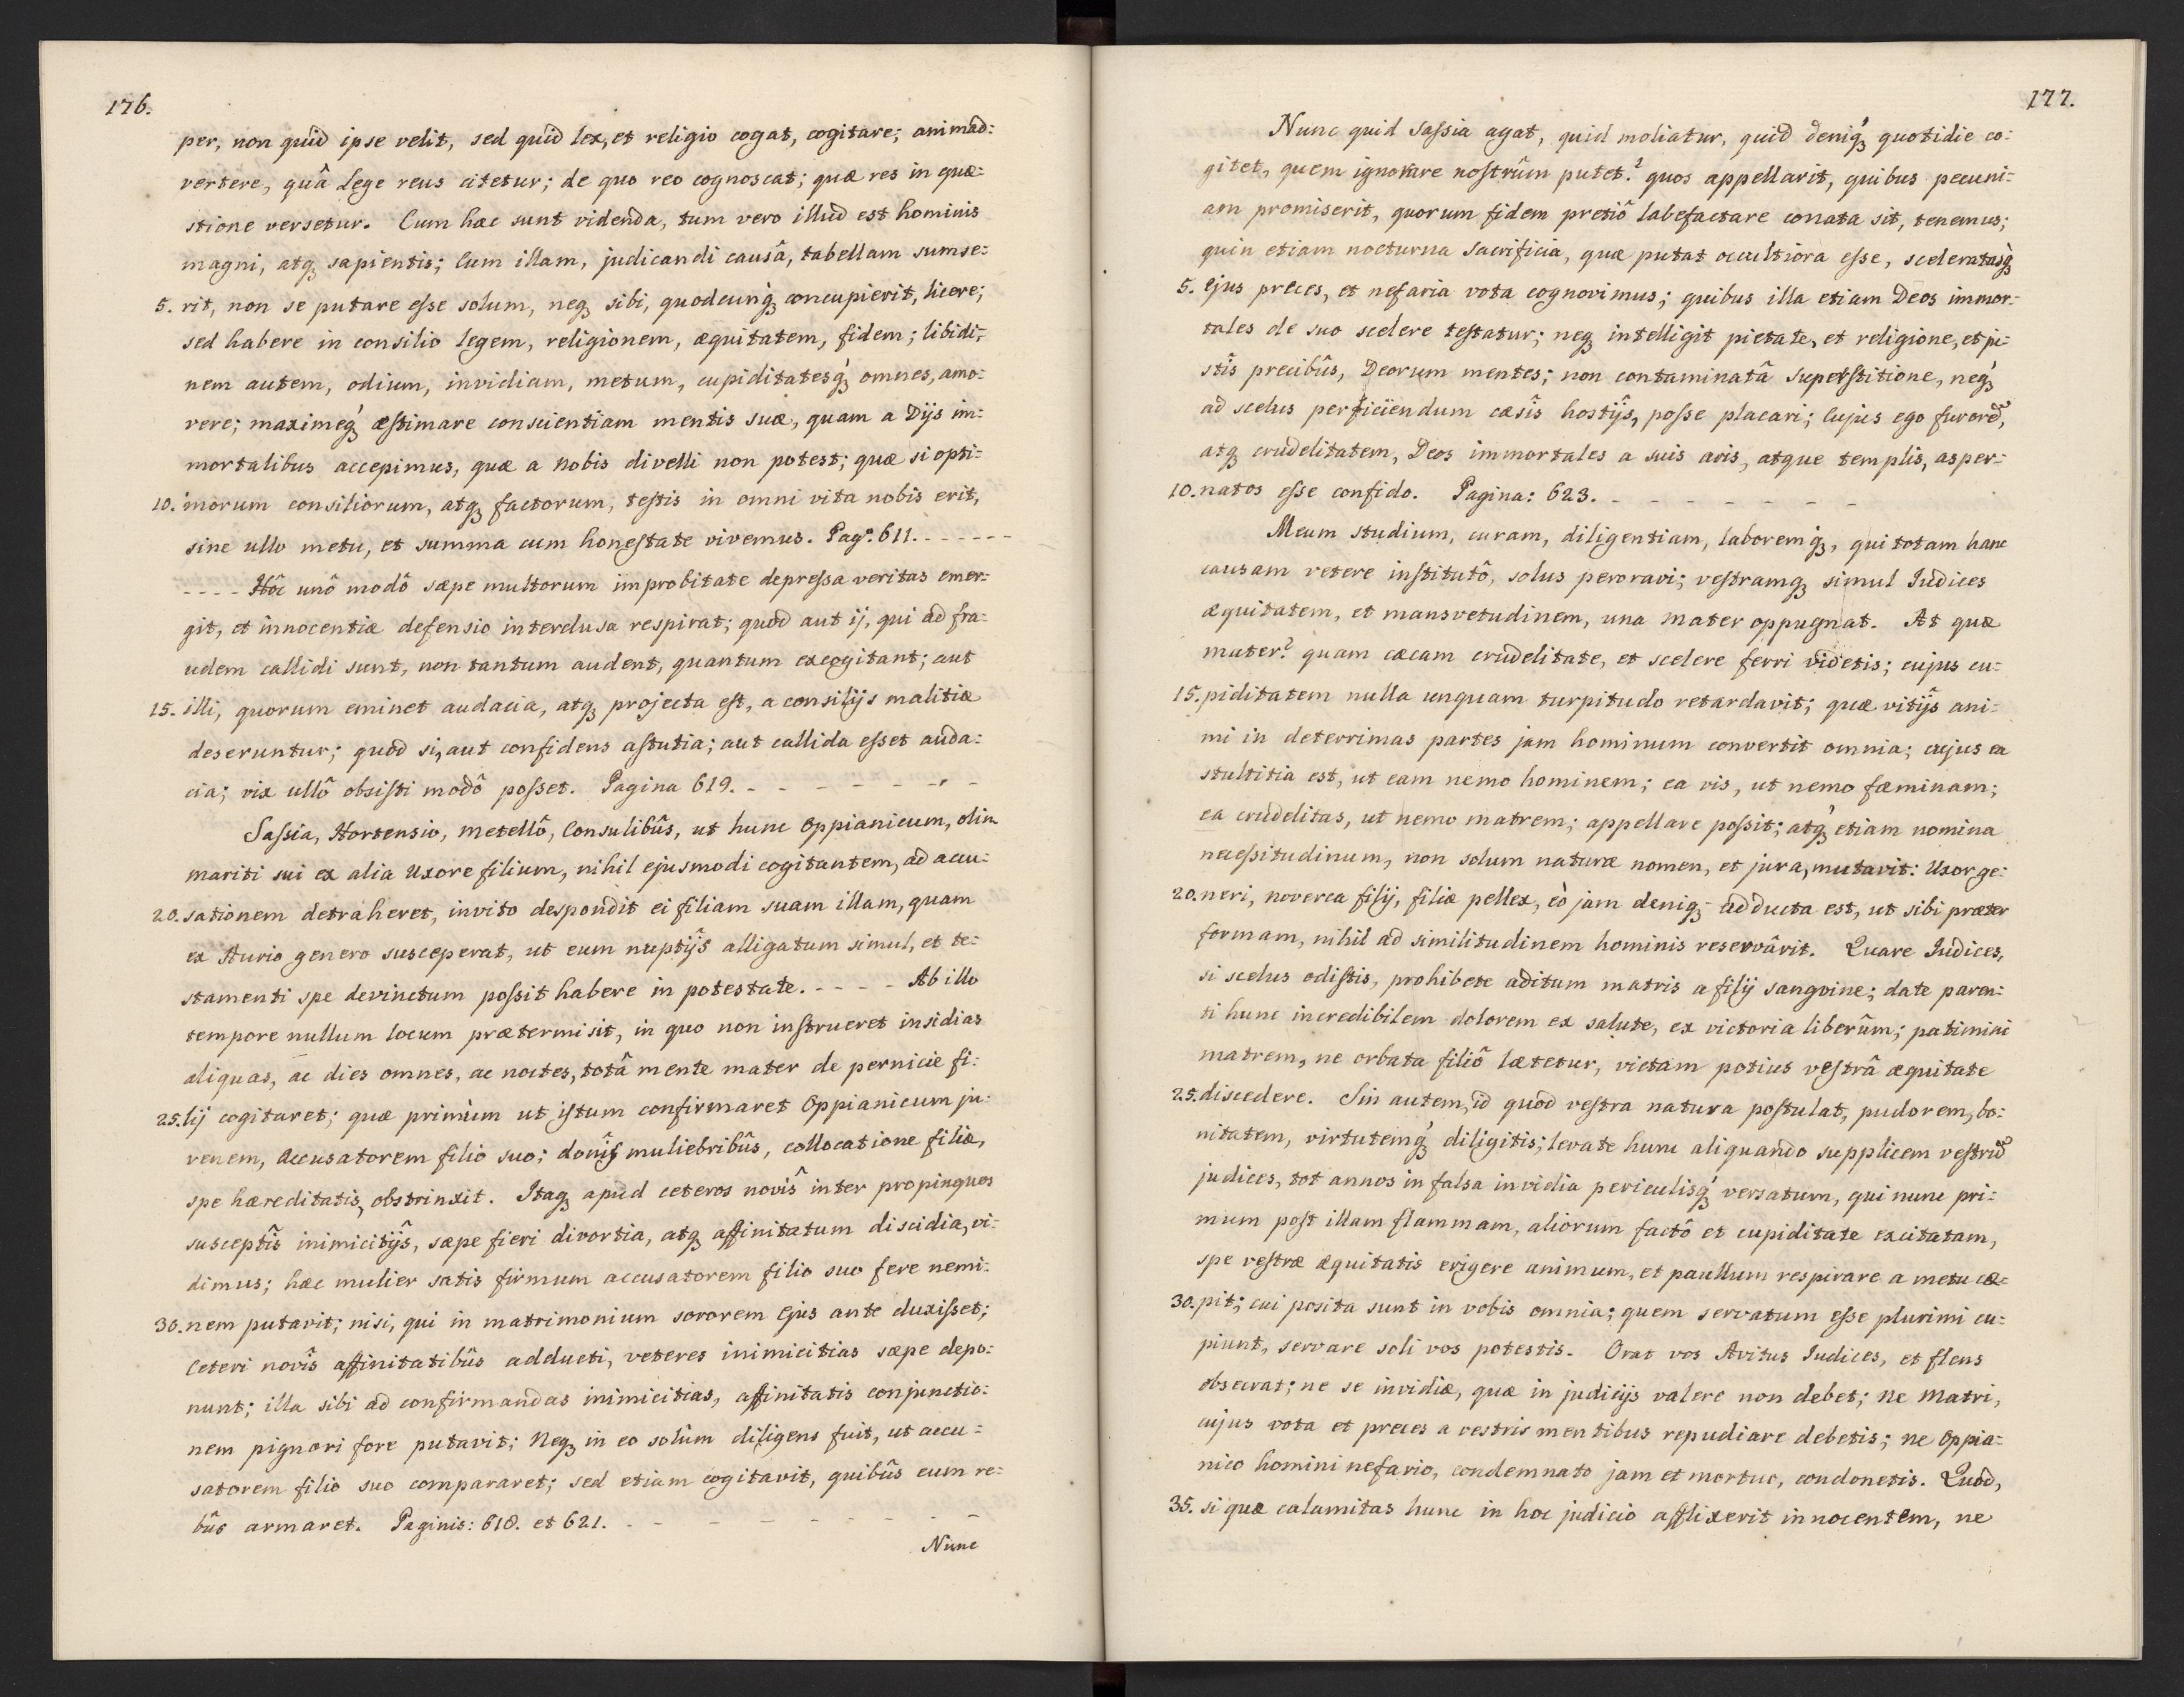 176.
per, non quid ipse velit, sed quid lex, et religio cogat, cogitare; animad:
vertere, quâ Lege reus citetur; de quo reo cognoscat; quæ res in quæ:
stione versetur. Cum hæc sunt videnda, tum vero illud est hominis
magni, atq3 sapientis; Cum illam, judicandi causâ, tabellam sumse:
5. rit, non se putare eſse solum, neq3 sibi, quodcunq́3 concupierit, licere;
sed habere in consilio legem, religionem, æquitatem, fidem; libidi:
nem autem, odium, invidiam, metum, cupiditatesq́3 omnes, amo:
vere; maximeq́3 æstimare conscientiam mentis suæ, quam a Dijs im:
mortalibus accepimus, quæ a nobis divelli non potest; quæ si opti:
10. morum consiliorum, atq3 factorum, testis in omni vita nobis erit,
sine ullo metu, et summa cum honestate vivemus. Pagᵃ: 611. - - - - - -
- - - - Hôc unô modô sæpe multorum improbitate depreſsa veritas emer:
git, et innocentiæ defensio interclusa respirat; quod aut ij, qui ad fra:
udem callidi sunt, non tantum audent, quantum excogitant; aut
15. illi, quorum eminet audacia, atq3 projecta est, a consilijs malitiæ
deseruntur; quod si, aut confidens astutia; aut callida eſset auda:
cia; vix ullô obsisti modô poſset. Pagina 619. - - - - - - -
Saſsia, Hortensio, Metellô, Consulibûs, ut hunc Oppianicum, olim
mariti sui ex alia Uxore filium, nihil ejusmodi cogitantem, ad accu:
20. sationem detraheret, invito despondit ei filiam suam illam, quam
ex Aurio genero susceperat, ut eum nuptijs alligatum simul, et te:
stamenti spe devinctum poſsit habere in potestate. - - - - Ab illo
tempore nullum locum prætermisit, in quo non instrueret insidias
aliquas, ac dies omnes, ac noctes, totâ mente mater de pernicie fi:
25. lij cogitaret; quæ primùm ut istum confirmaret Oppianicum ju:
venem, Accusatorem filio suo; donîs muliebribûs, collocatione filiæ,
spe hæreditatis, obstrinxit. Itaq3 apud ceteros novîs inter propinquos
susceptîs inimicitijs, sæpe fieri divortia, atq3 affinitatum discidia, vi:
dimus; hæc mulier satis firmum accusatorem filio suo fere nemi:
30. nem putavit; nisi, qui in matrimonium sororem Ejus ante duxiſset;
Ceteri novîs affinitatibûs adducti, veteres inimicitias sæpe depo:
nunt; illa sibi ad confirmandas inimicitias, affinitatis conjunctio:
nem pignori fore putavit; Neq3 in eo solûm diligens fuit, ut accu:
satorem filio suo compararet; sed etiam cogitavit, quibûs eum re:
bûs armaret. Paginis: 618. et 621. - - - - - - - -
Nunc
177.
Nunc quid Saſsia agat, quid moliatur, quid deniq́3 quotidie co:
gitet, quem ignorare nostrûm putet? quos appellarit, quibus pecuni:
am promiserit, quorum fidem pretiô labefactare conata sit, tenemus;
quin etiam nocturna Sacrificia, quæ putat occultiora eſse, sceleratasq́3
5. Ejus preces, et nefaria vota cognovimus; quibus illa etiam Deos immor:
tales de suo scelere testatur; neq3 intelligit pietate, et religione, et ju:
stîs precibûs, Deorum mentes; non contaminatâ superstitione, neq́3
ad scelus perficiendum cæsîs hostijs, poſse placari; Cujus ego furorē,
atq3 crudelitatem, Deos immortales a suis aris, atque templis, asper:
10. natos eſse confido. Pagina: 623. - - - - - - - -
Meum studium, curam, diligentiam, laboremq́3, qui totam hanc
causam vetere institutô, solus peroravi; vestramq3 simul Iudices
æquitatem, et mansvetudinem, una Mater oppugnat. At quæ
mater? quam cæcam crudelitate, et scelere ferri videtis; cujus cu:
15. piditatem nulla unquam turpitudo retardavit; quæ vitijs ani:
mi in deterrimas partes jam hominum convertit omnia; cujus ea
stultitia est, ut eam nemo hominem; ea vis, ut nemo fæminam;
ea crudelitas, ut nemo matrem; appellare poſsit; atq́3 etiam nomina
neceſsitudinum, non solum naturæ nomen, et jura, mutavit: Uxor ge:
20. neri, noverca filij, filiæ pellex, eò jam deniq3 adducta est, ut sibi præter
formam, nihil ad similitudinem hominis reservârit. Quare Iudices,
si scelus odistis, prohibete aditum matris a filij sangvine; date paren:
ti hunc incredibilem dolorem ex salute, ex victoria liberûm; patimini
matrem, ne orbata filiô lætetur, victam potius vestrâ æquitate
25. discedere. Sin autem, id quod vestra natura postulat, pudorem, bo:
nitatem, virtutemq́3 diligitis; levate hunc aliquando supplicem vestrū
judices, tot annos in falsa invidia periculisq́3 versatum, qui nunc pri:
mum post illam flammam, aliorum factô et cupiditate excitatam,
spe vestræ æquitatis erigere animum, et paullum respirare a metu cæ:
30. pit; cui posita sunt in vobis omnia; quem servatum eſse plurimi cu:
piunt, servare soli vos potestis. Orat vos Avitus Iudices, et flens
obsecrat; ne se invidiæ, quæ in judicijs valere non debet; Ne Matri,
cujus vota et preces a vestris mentibus repudiare debetis; ne Oppia:
nico homini nefario, condemnato jam et mortuo, condonetis. Quôd,
35. si qua calamitas hunc in hoc judicio afflixerit innocentem, ne